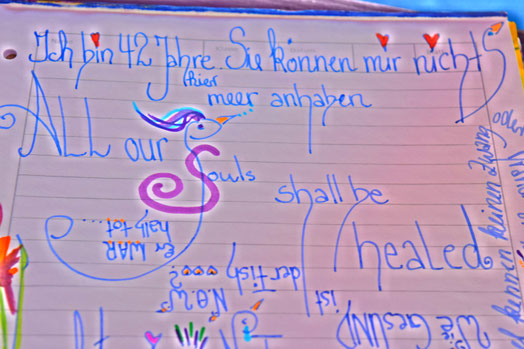 Ich bin 42 Jahre. Sie können mir nichts
(hier
meer anhaben
ALL our Souls
shall be
healed.
Er WAR
halb tot....
der Tisch
N.O.W.
ist
Wie GESUND
kennen keinen Zwang oder